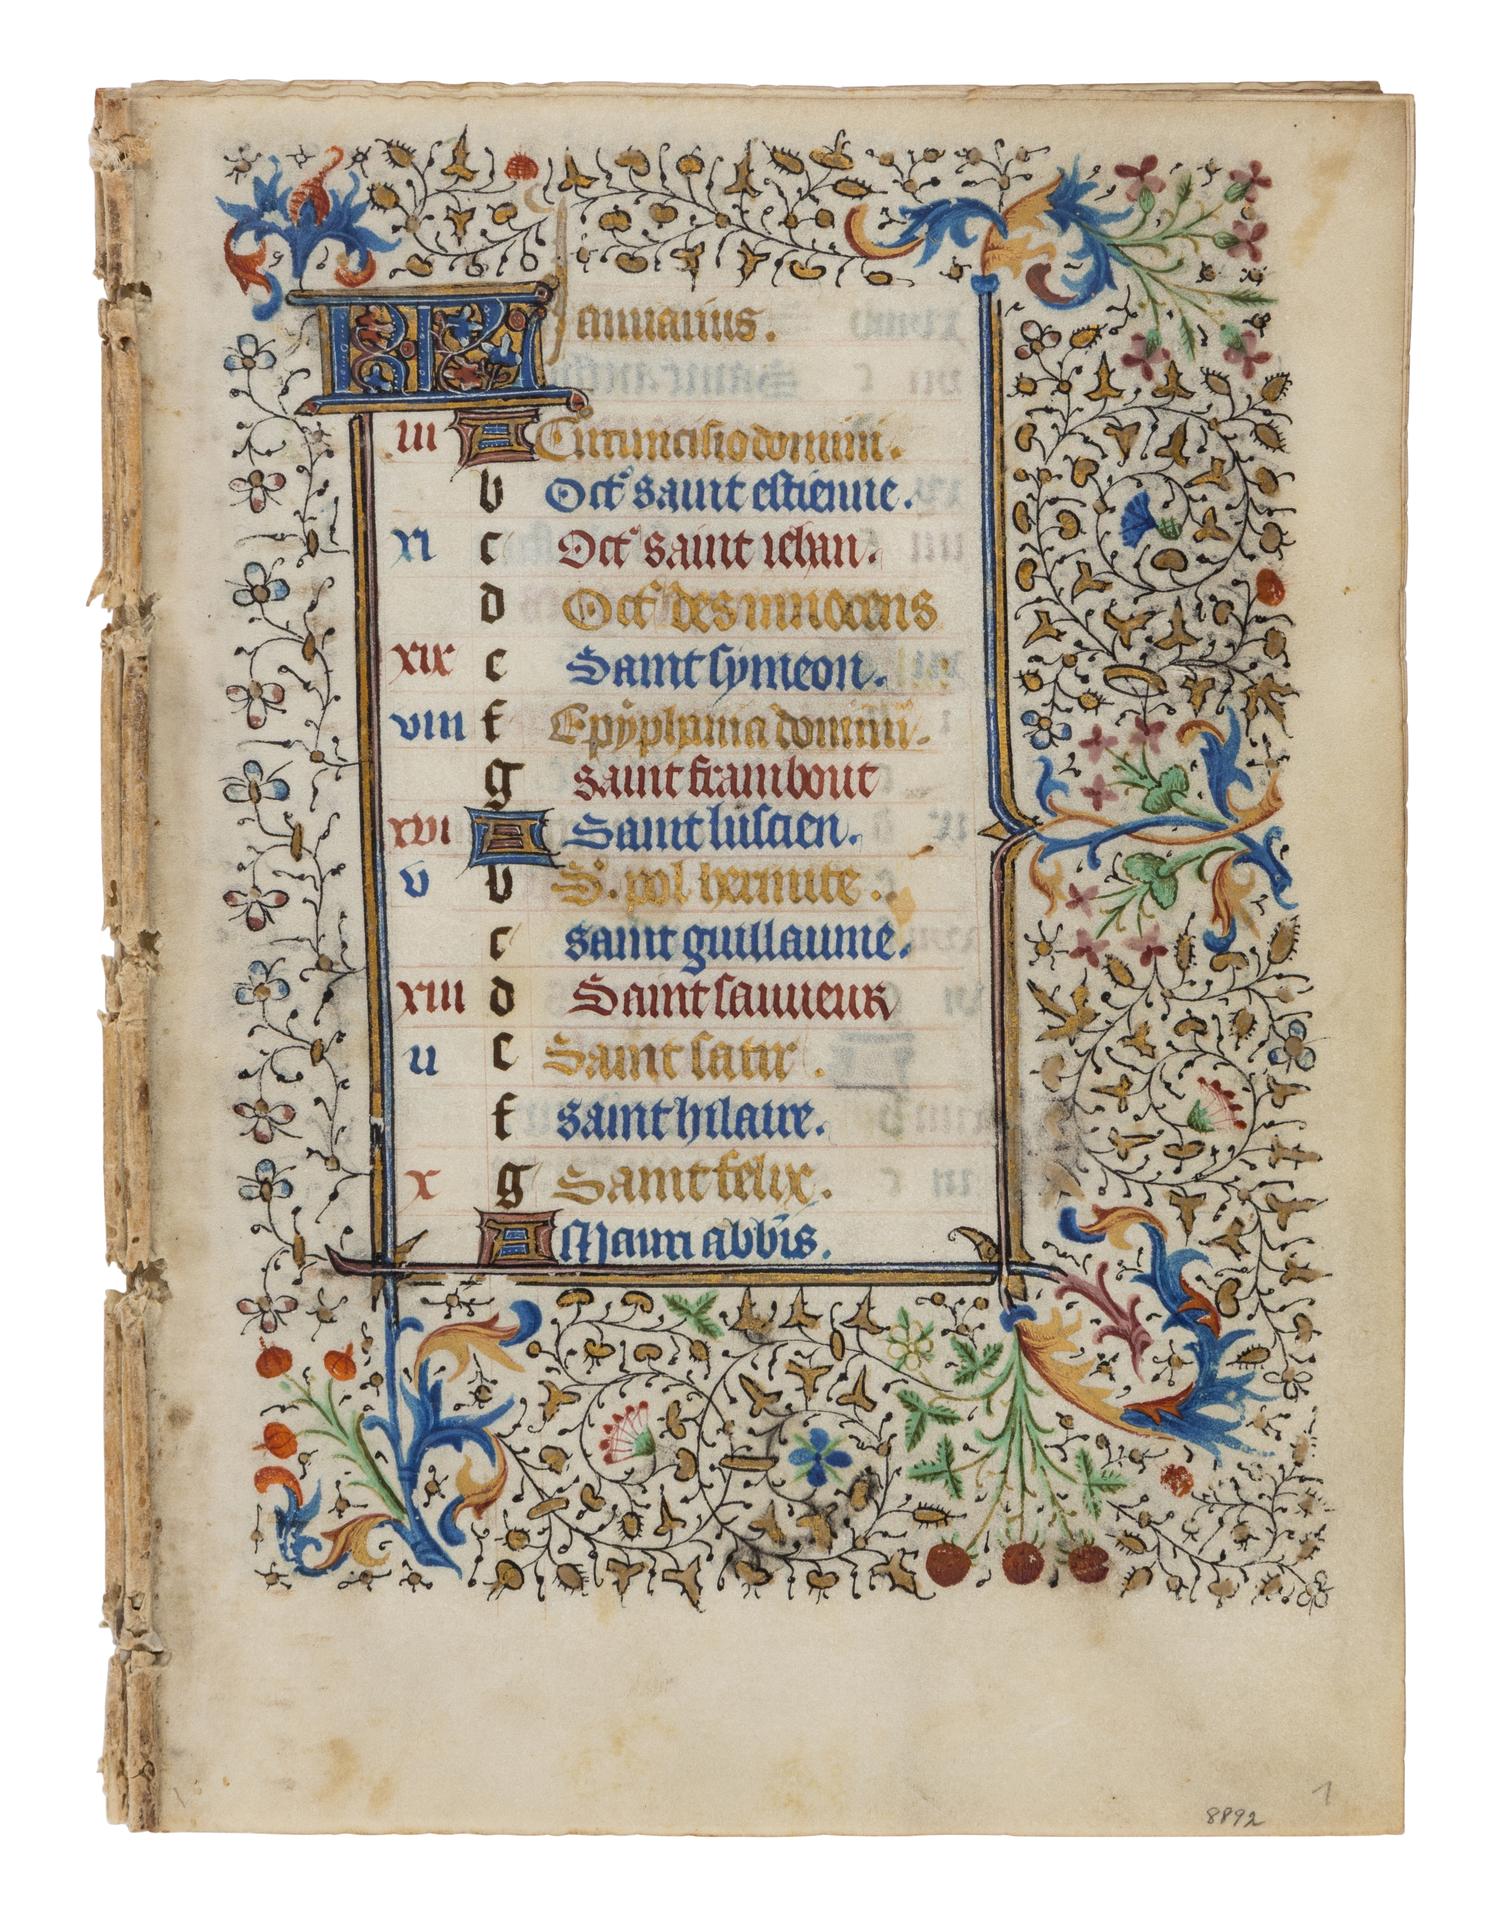 KL Januarius.
III A Circuncisio domini.
b Oct' saint estienne.
XI c Oct' saint iehan.
d Oct' des innocens
XIX e Saint symeon.
VIII f Epyphania domini.
g saint frambout
XVI A Saint luscien.
V b S. pol hermite.
c saint guillaume.
XIII d Saint sauueur
II e Saint satir.
f saint hilaire.
X g Saint felix.
A Mauri abbis.
8892
1